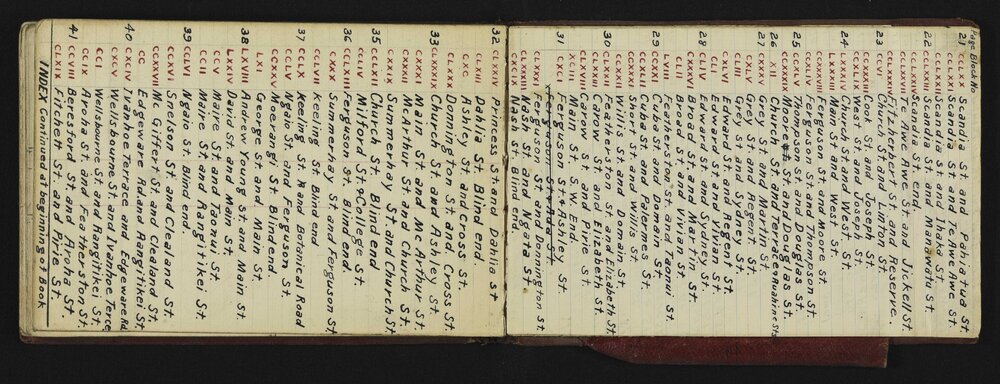 Page Block No.
21 CCLXX Scandia St. and Pahiatua St.
Scandia St. and Te Awe Awe St.
22 Scandia St. and Ihaka St.
Scandia St. and Manawatu St.
Te Awe Awe St. and Jickell St.
St. end.
Fitzherbert St. end Reserve.
23 CCXVI Church St. and Linton St.
CCXV Cook St. and Joseph St.
West St. and Joseph St.
24 Church St. and West St.
Main St. and West St.
Ferguson St. and Moore St.
25 Ferguson St. and Thompson St.
CCXLV Thompson St. and Douglas St.
Main St. and Douglas St.
26 CCXII Church St. and Terrace
27 Grey St. and Martin St.
Grey St. and Regent St.
Grey St. and Sydney St.
CLVI Edward St. and Regent St.
28 CLIV Edward St. and Vivian St.
CLV Edward St. and Sydney St.
CLII Broad St. and Martin St.
Broad St. and Vivian St.
LVIII Featherston St. and Taonui St.
29 Cuba St. and Domain St.
Cuba St. and James St.
Cuba St. and Willis St.
Willis St. and Domain St.
30 Featherston St. and Elizabeth St
Carow St. and Elizabeth St.
Carow St. and Pirie St.
XCIII Main St. N.E. end.
31 Ferguson St. and Ashley St.
Ferguson St. and Ada St.
CLXXX Ferguson St. and Donnington St.
Nash St. and Ngata St.
Nash St. Blind end.
32 Princess St. and Dahlia St
CLXIII Dahlia St. Blind end
CXC Ashley St. and Cross St.
CLXXX Donnington St. and Cross St.
33 CLXXXIX Church St. and Ashley St.
Main St. and McArthur St.
CXXII McArthur St. and Church St.
CLXXIX Summerhay St. and Church St
35 Church St. Blind end
CCXIX Milford St.-College St.
36 CCLXIII Ferguson St. Blind end.
CXXX Summerhay St. and Ferguson St
CCLVIII Keeling St. Blind end
37 CCLX Keeling St. and Botanical Road
CCLIV Ngaio St. and Ferguson St.
CCXXV Moerangi St. Blind end.
LXI George St. and Main St.
38 LXVIII Andrew Young St. and Main St.
LXXIV David St. and Main St.
CCV Maire St. and Tanui St.
CCII Maire St. and Rangitikei St.
39 CCLVI Ngaio St. Blind end.
CCXVI Smelson St. and Cleland St.
CCXVIII McGiffert St. and Cleeland St.
CC Edgeware Rd. and Rangitikei St
40 CXCIV Ivanhoe Terrace and Edgeware Rd.
CXCV Wellsbourne St. and Ivanhoe Terce
CCI Wellsbourne St. and Rangitikei St.
CCIX Aroha St. and Featherston St.
CCVII Beresford St. and Aroha St
41 CLXIX Fitchett St. and Pirie St.
INDEX Continued at Beginning of Book